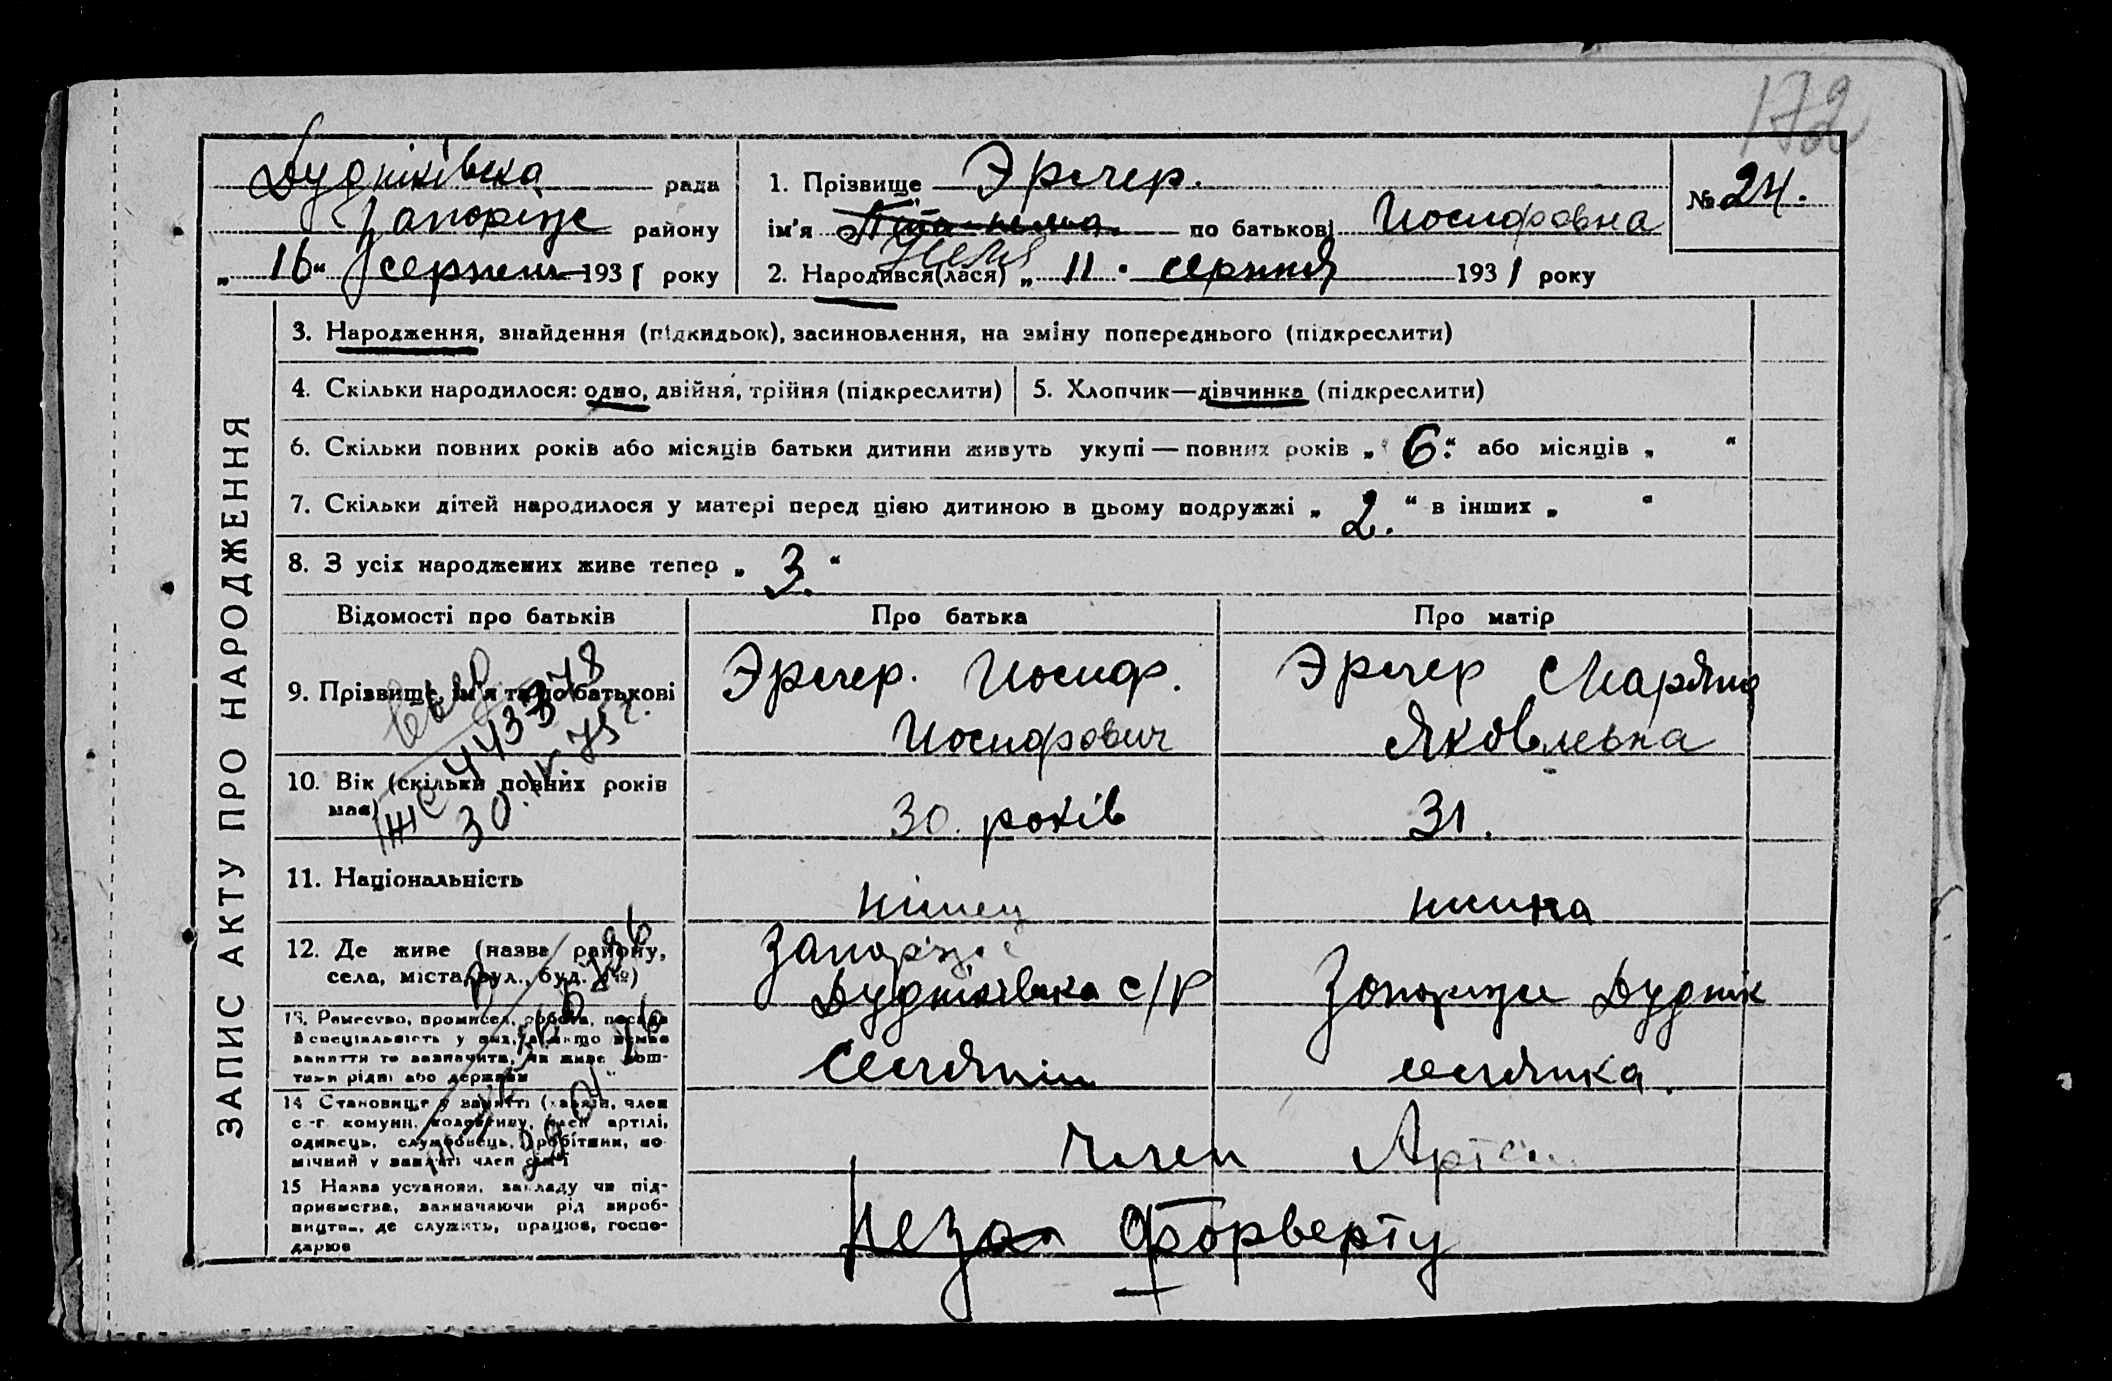 172
Дудніківска рада
Запоріжс району
„ 16 “ серпня 1931 року
1. Прізвище Эречер.
ім'я по батькові Иосифовна
№ 24.
2. Народився(лася) „ 11 . серпня 1931 року
ЗАПИС АКТУ ПРО НАРОДЖЕННЯ
3. Народження, знайдення (підкидьок), засиновлення, на зміну попереднього (підкреслити)
4. Скільки народилося: одно, двійня, трійня (підкреслити)
5. Хлопчик—дівчинка (підкреслити)
6. Скільки повних років або місяців батьки дитини живуть укупі — повних років „ 6 “ або місяців „ “
7. Скільки дітей народилося у матері перед цією дитиною в цьому подружжі „ 2. “ в інших „ “
8. З усіх народжених живе тепер „ 3. “
Відомості про батьків
Про батька
Про матір
9. Прізвище, ім'я та по батькові
Эречер. Иосиф.
Иосифович
Эречер Марьяна
Яковлевна
10. Вік (скільки повних років
має)
30. років
31.
11. Національність
німец
нимка
12. Де живе (назва району,
села, міста, вул., буд. №)
Запоріж
Дудніківка с/р
Запориж Дуднік
13. Ремество, промисел, робота, посада
й спеціяльність у них, а якщо немає
заняття то зазначити, як живе кош-
тами рідні або держави
Селянин
селянка.
14 Становище у занятті (хазяїн, член
с.-г. комуни, колективу, член артілі,
одинець, службовець, робітник, по-
мічний у занятті член сім'ї
Член Артели
15 Назва установи, закладу чи під-
приємства, зазначаючи рід вироб-
ництва, де служить, працює, госпо-
дарює
Форверту
30.IX 75 г.